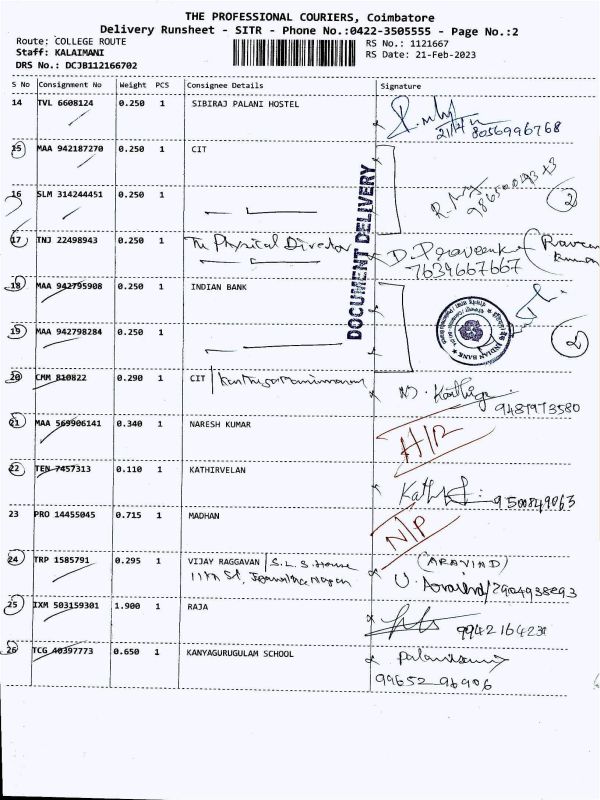 THE PROFESSIONAL COURIERS, Coimbatore
Delivery Runsheet - SITR - Phone No.:0422-3505555 - Page No.:2
Route: COLLEGE ROUTE
Staff: KALAIMANI
DRS No.: DCJB112166702
RS No.: 1121667
RS Date: 21-Feb-2023
S No Consignment No Weight PCS Consignee Details Signature
14 TVL 6608124 0.250 1 SIBIRAJ PALANI HOSTEL
8056996768
15 MAA 942187270 0.250 1 CIT
16 SLM 314244451 0.250 1
2
17 TNJ 22498943 0.250 1 The Physical Director
7639667667
DOCUMENT DELIVERY
18 MAA 942795908 0.250 1 INDIAN BANK
INDIAN BANK
19 MAA 942798284 0.250 1
2
20 CMM 810822 0.290 1 CIT
9487973580
21 MAA 569906141 0.340 1 NARESH KUMAR
22 TEN 7457313 0.110 1 KATHIRVELAN
9500849063
23 PRO 14455045 0.715 1 MADHAN
N/P
24 TRP 1585791 0.295 1 VIJAY RAGGAVAN / S.L.S. House
11th St,
(ARAVIND)
25 IXM 503159301 1.900 1 RAJA
26 TCG 40397773 0.650 1 KANYAGURUGULAM SCHOOL
99652 96906